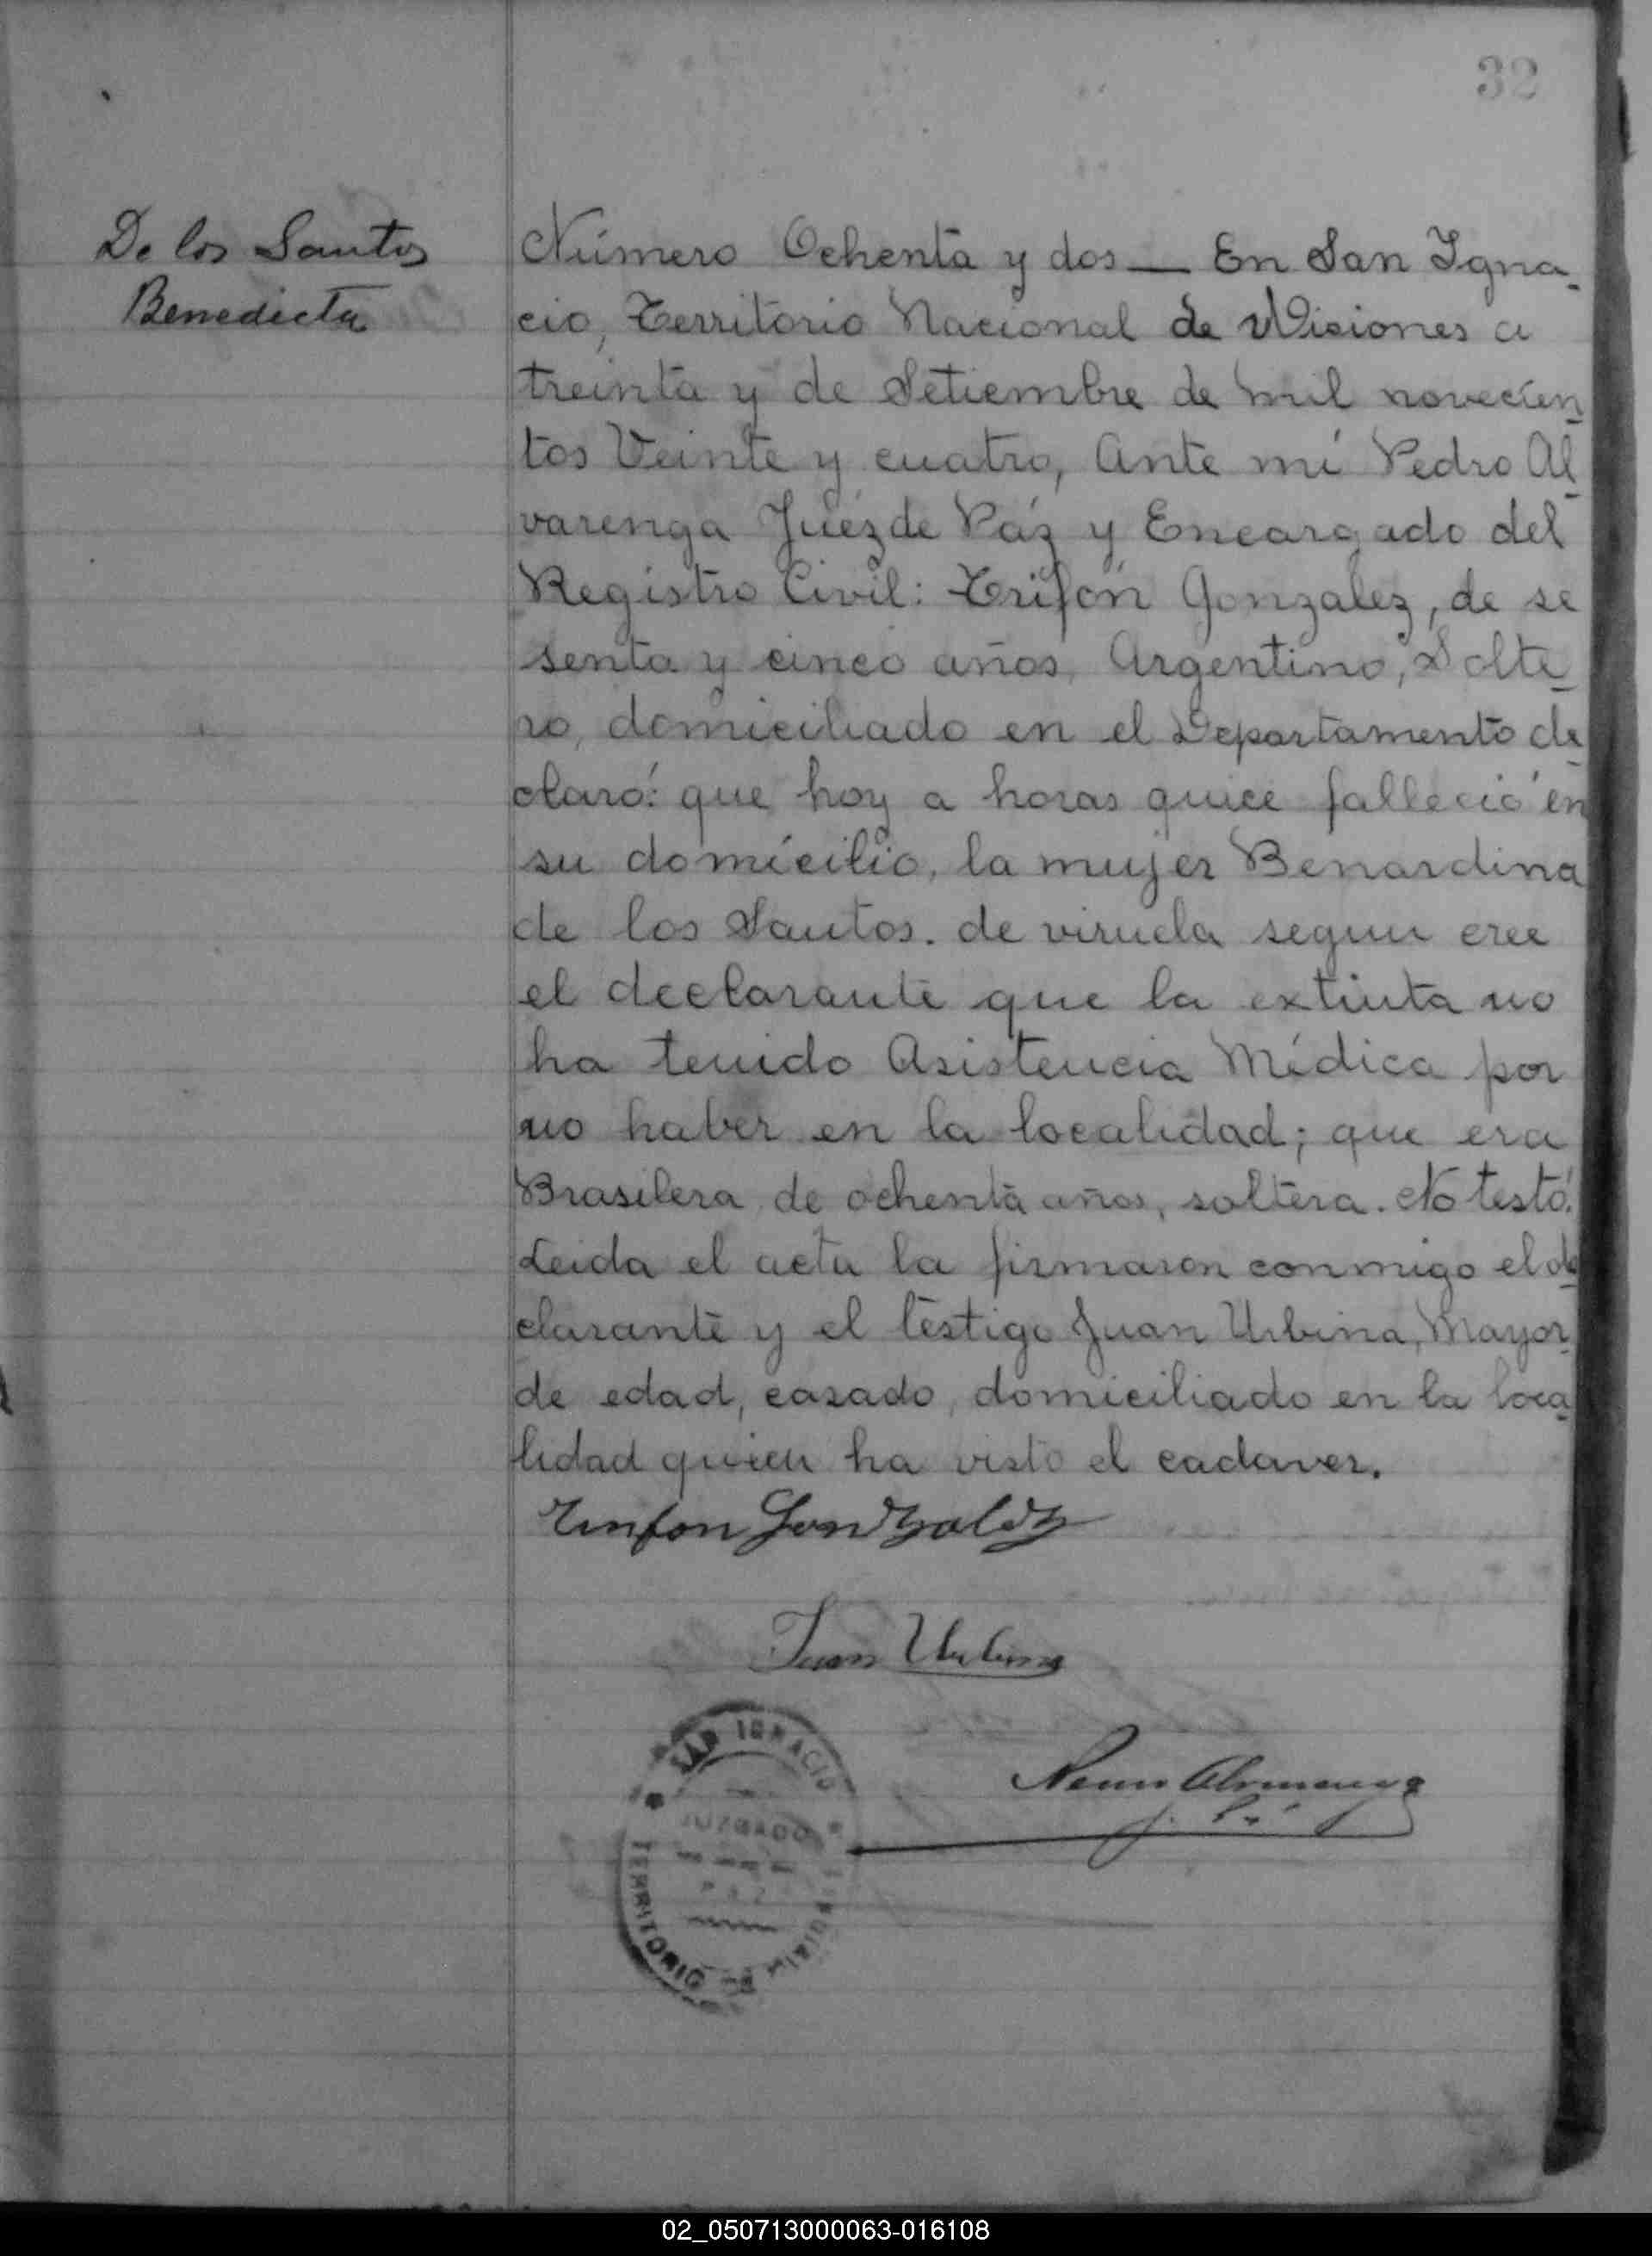 32
De los Santos
Benedicta
Número Ochenta y dos — En San Igna-
cio, Territorio Nacional de Misiones a
treinta y de Setiembre de mil novecien-
tos Veinte y cuatro, Ante mí Pedro Al-
varenga Juéz de Páz y Encargado del
Registro Civil: Trifón Gonzalez, de se
senta y cinco años, Argentino, Solte-
ro, domiciliado en el Departamento de-
claró: que hoy a horas quice falleció en
su domícilio, la mujer Benardina
de los Santos. de viruela segun cree
el declarante que la extinta no
ha tenido Asistencia Médica por
no haber en la localidad; que era
Brasilera, de ochenta años, soltera. No testó.
Leida el acta la firmaron conmigo el de-
clarante y el testigo Juan Urbina, Mayor-
de edad, casado, domiciliado en la loca-
lidad quien ha visto el cadaver.
Trifon Gonzalez
Juan Urbina
SAN IGNACIO
JUZGADO
PAZ
TERRITORIO
02_050713000063-016108